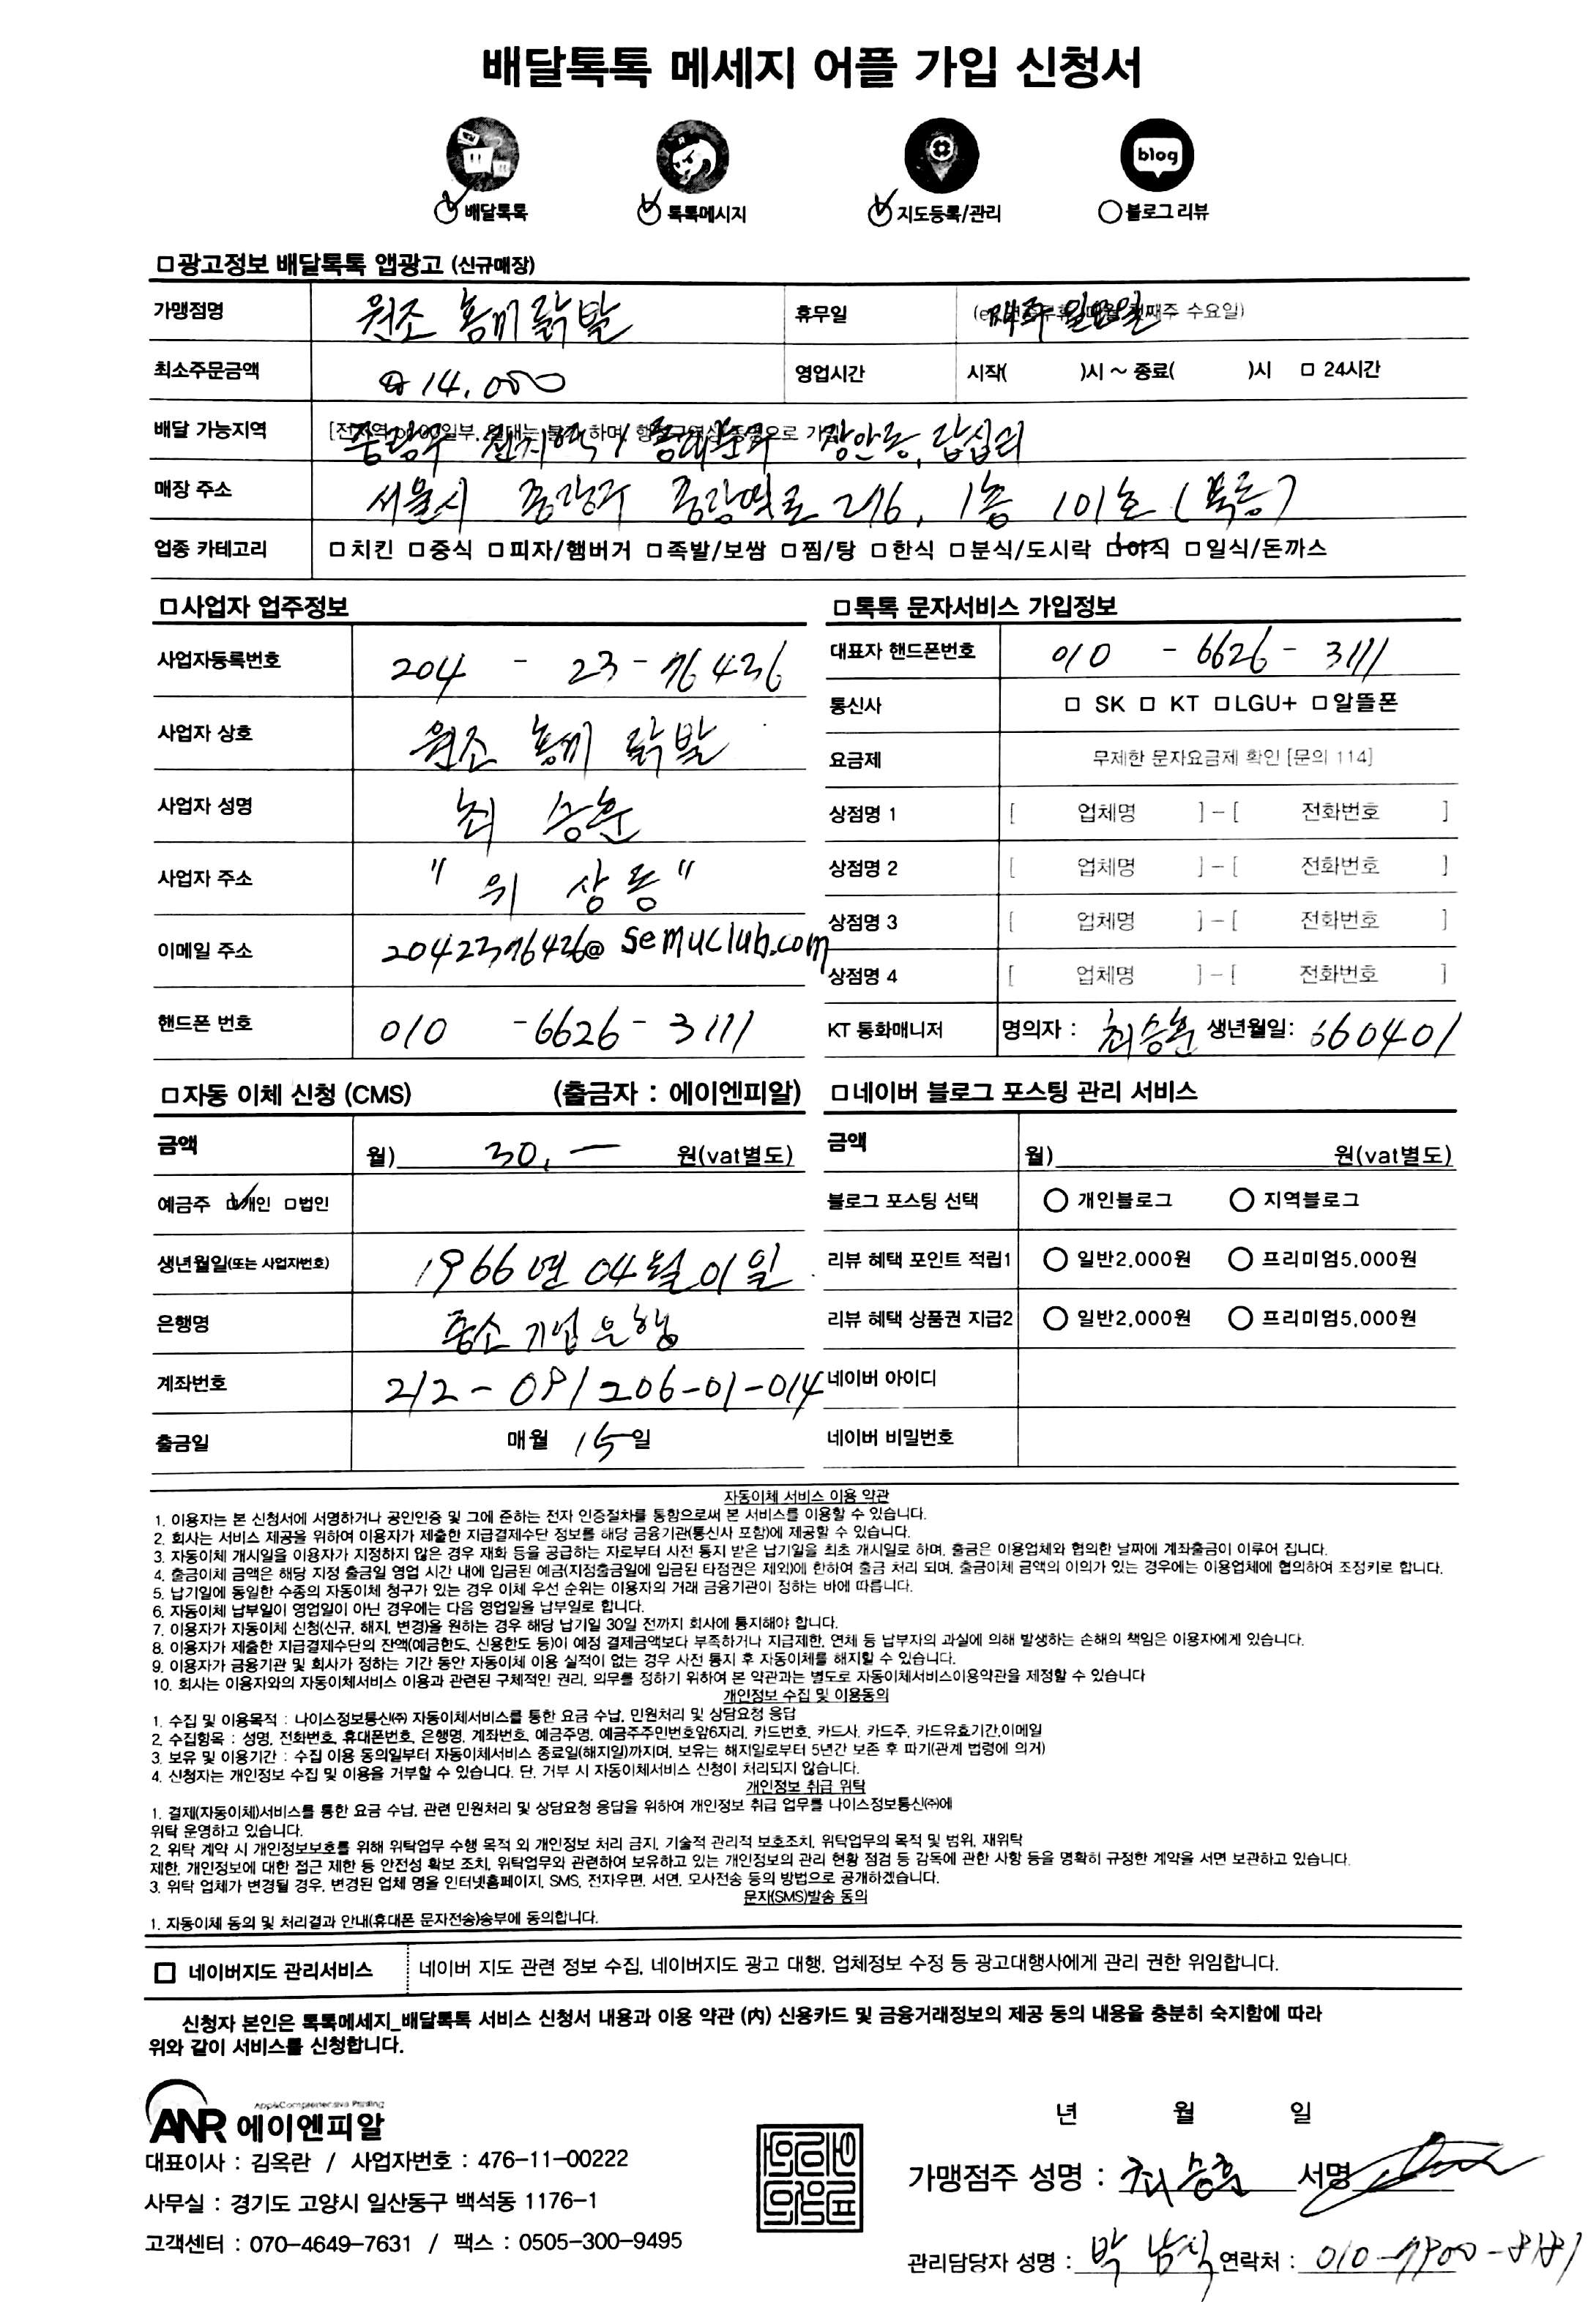 배달톡톡 메세지 어플 가입 신청서
blog
배달톡톡 톡톡메시지 지도등록/관리 블로그 리뷰
광고정보 배달톡톡 앱광고 (신규매장)
가맹점명 원조 홍끼 닭발 휴무일 일요일 수요일)
최소주문금액 ₩14,000 영업시간 시작( )시 ~ 종료( )시 □ 24시간
배달 가능지역 중랑구 전지역 / 동대문구 장안동, 답십리
매장 주소 서울시 중랑구 중랑역로 216, 1층 101호 (묵동)
업종 카테고리 □치킨 □중식 □피자/햄버거 □족발/보쌈 □찜/탕 □한식 □분식/도시락 □야식 □일식/돈까스
□사업자 업주정보
사업자등록번호 204 - 23 - 76436
사업자 상호 원조 홍끼 닭발
사업자 성명 최 승훈
사업자 주소 " 위 상동 "
이메일 주소 @semuclub.com
핸드폰 번호 010 - 6626 - 3111
□톡톡 문자서비스 가입정보
대표자 핸드폰번호 010 - 6626 - 3111
통신사 □ SK □ KT □LGU+ □알뜰폰
요금제 무제한 문자요금제 확인 [문의 114]
상점명 1 [ 업체명 ] - [ 전화번호 ]
상점명 2 [ 업체명 ] - [ 전화번호 ]
상점명 3 [ 업체명 ] - [ 전화번호 ]
상점명 4 [ 업체명 ] - [ 전화번호 ]
KT 통화매니저 명의자 : 최승훈 생년월일: 660401
□자동 이체 신청 (CMS) (출금자 : 에이엔피알)
금액 월) 30,— 원(vat별도)
예금주 □개인 □법인
생년월일(또는 사업자번호) 1966년 04월 01일
은행명 중소기업은행
계좌번호 212-091206-01-014
출금일 매월 15일
□네이버 블로그 포스팅 관리 서비스
금액 월) 원(vat별도)
블로그 포스팅 선택 ○ 개인블로그 ○ 지역블로그
리뷰 혜택 포인트 적립1 ○ 일반2,000원 ○ 프리미엄5,000원
리뷰 혜택 상품권 지급2 ○ 일반2,000원 ○ 프리미엄5,000원
네이버 아이디
네이버 비밀번호
자동이체 서비스 이용 약관
1. 이용자는 본 신청서에 서명하거나 공인인증 및 그에 준하는 전자 인증절차를 통함으로써 본 서비스를 이용할 수 있습니다.
2. 회사는 서비스 제공을 위하여 이용자가 제출한 지급결제수단 정보를 해당 금융기관(통신사 포함)에 제공할 수 있습니다.
3. 자동이체 개시일을 이용자가 지정하지 않은 경우 재화 등을 공급하는 자로부터 사전 통지 받은 납기일을 최초 개시일로 하며, 출금은 이용업체와 협의한 날짜에 계좌출금이 이루어 집니다.
4. 출금이체 금액은 해당 지정 출금일 영업 시간 내에 입금된 예금(지정출금일에 입금된 타점권은 제외)에 한하여 출금 처리 되며, 출금이체 금액의 이의가 있는 경우에는 이용업체에 협의하여 조정키로 합니다.
5. 납기일에 동일한 수종의 자동이체 청구가 있는 경우 이체 우선 순위는 이용자의 거래 금융기관이 정하는 바에 따릅니다.
6. 자동이체 납부일이 영업일이 아닌 경우에는 다음 영업일을 납부일로 합니다.
7. 이용자가 자동이체 신청(신규, 해지, 변경)을 원하는 경우 해당 납기일 30일 전까지 회사에 통지해야 합니다.
8. 이용자가 제출한 지급결제수단의 잔액(예금한도, 신용한도 등)이 예정 결제금액보다 부족하거나 지급제한, 연체 등 납부자의 과실에 의해 발생하는 손해의 책임은 이용자에게 있습니다.
9. 이용자가 금융기관 및 회사가 정하는 기간 동안 자동이체 이용 실적이 없는 경우 사전 통지 후 자동이체를 해지할 수 있습니다.
10. 회사는 이용자와의 자동이체서비스 이용과 관련된 구체적인 권리, 의무를 정하기 위하여 본 약관과는 별도로 자동이체서비스이용약관을 제정할 수 있습니다
개인정보 수집 및 이용동의
1. 수집 및 이용목적 : 나이스정보통신㈜ 자동이체서비스를 통한 요금 수납, 민원처리 및 상담요청 응답
2. 수집항목 : 성명, 전화번호, 휴대폰번호, 은행명, 계좌번호, 예금주명, 예금주주민번호앞6자리, 카드번호, 카드사, 카드주, 카드유효기간,이메일
3. 보유 및 이용기간 : 수집 이용 동의일부터 자동이체서비스 종료일(해지일)까지며, 보유는 해지일로부터 5년간 보존 후 파기(관계 법령에 의거)
4. 신청자는 개인정보 수집 및 이용을 거부할 수 있습니다. 단, 거부 시 자동이체서비스 신청이 처리되지 않습니다.
개인정보 취급 위탁
1. 결제(자동이체)서비스를 통한 요금 수납, 관련 민원처리 및 상담요청 응답을 위하여 개인정보 취급 업무를 나이스정보통신㈜에
위탁 운영하고 있습니다.
2. 위탁 계약 시 개인정보보호를 위해 위탁업무 수행 목적 외 개인정보 처리 금지, 기술적 관리적 보호조치, 위탁업무의 목적 및 범위, 재위탁
제한, 개인정보에 대한 접근 제한 등 안전성 확보 조치, 위탁업무와 관련하여 보유하고 있는 개인정보의 관리 현황 점검 등 감독에 관한 사항 등을 명확히 규정한 계약을 서면 보관하고 있습니다.
3. 위탁 업체가 변경될 경우, 변경된 업체 명을 인터넷홈페이지, SMS, 전자우편, 서면, 모사전송 등의 방법으로 공개하겠습니다.
문자(SMS)발송 동의
1. 자동이체 동의 및 처리결과 안내(휴대폰 문자전송)송부에 동의합니다.
□ 네이버지도 관리서비스 네이버 지도 관련 정보 수집, 네이버지도 광고 대행, 업체정보 수정 등 광고대행사에게 관리 권한 위임합니다.
신청자 본인은 톡톡메세지_배달톡톡 서비스 신청서 내용과 이용 약관 (內) 신용카드 및 금융거래정보의 제공 동의 내용을 충분히 숙지함에 따라
위와 같이 서비스를 신청합니다.
ANR 에이엔피알
대표이사 : 김옥란 / 사업자번호 : 476-11-00222
사무실 : 경기도 고양시 일산동구 백석동 1176-1
고객센터 : 070-4649-7631 / 팩스 : 0505-300-9495
년 월 일
가맹점주 성명 : 최승훈 서명
관리담당자 성명 : 박남식 연락처 : 010